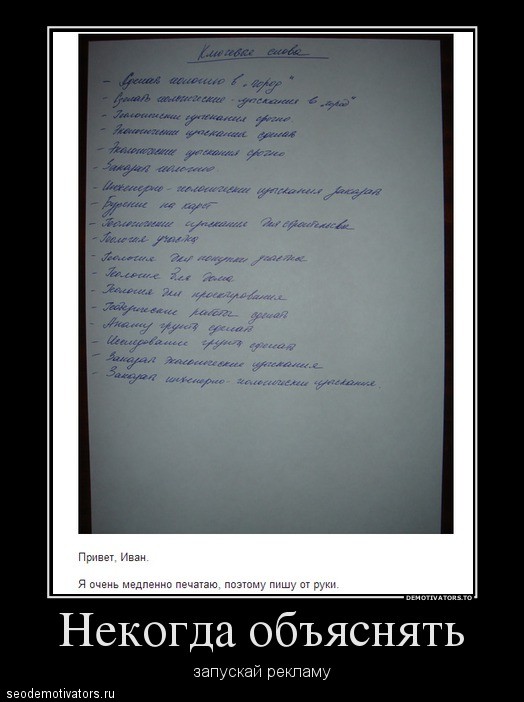 Ключевые слова
- Сделать геологию в „город“
- Сделать геологические изыскания в „город“
- Геологические изыскания срочно
- Экологические изыскания сделать
- Экологические изыскания срочно
- Заказать геологию
- Инженерно-геологические изыскания заказать
- Бурение на карст
- Геологические изыскания для строительства
- Геология участка
- Геология для покупки участка
- Геология для дома
- Геология для проектирования
- работы сделать
- Анализ грунта сделать
- Исследование грунта сделать
- Заказать экологические изыскания
- Заказать инженерно-геологические изыскания.
Привет, Иван.
Я очень медленно печатаю, поэтому пишу от руки.
DEMOTIVATORS.TO
Некогда объяснять
запускай рекламу
seodemotivators.ru